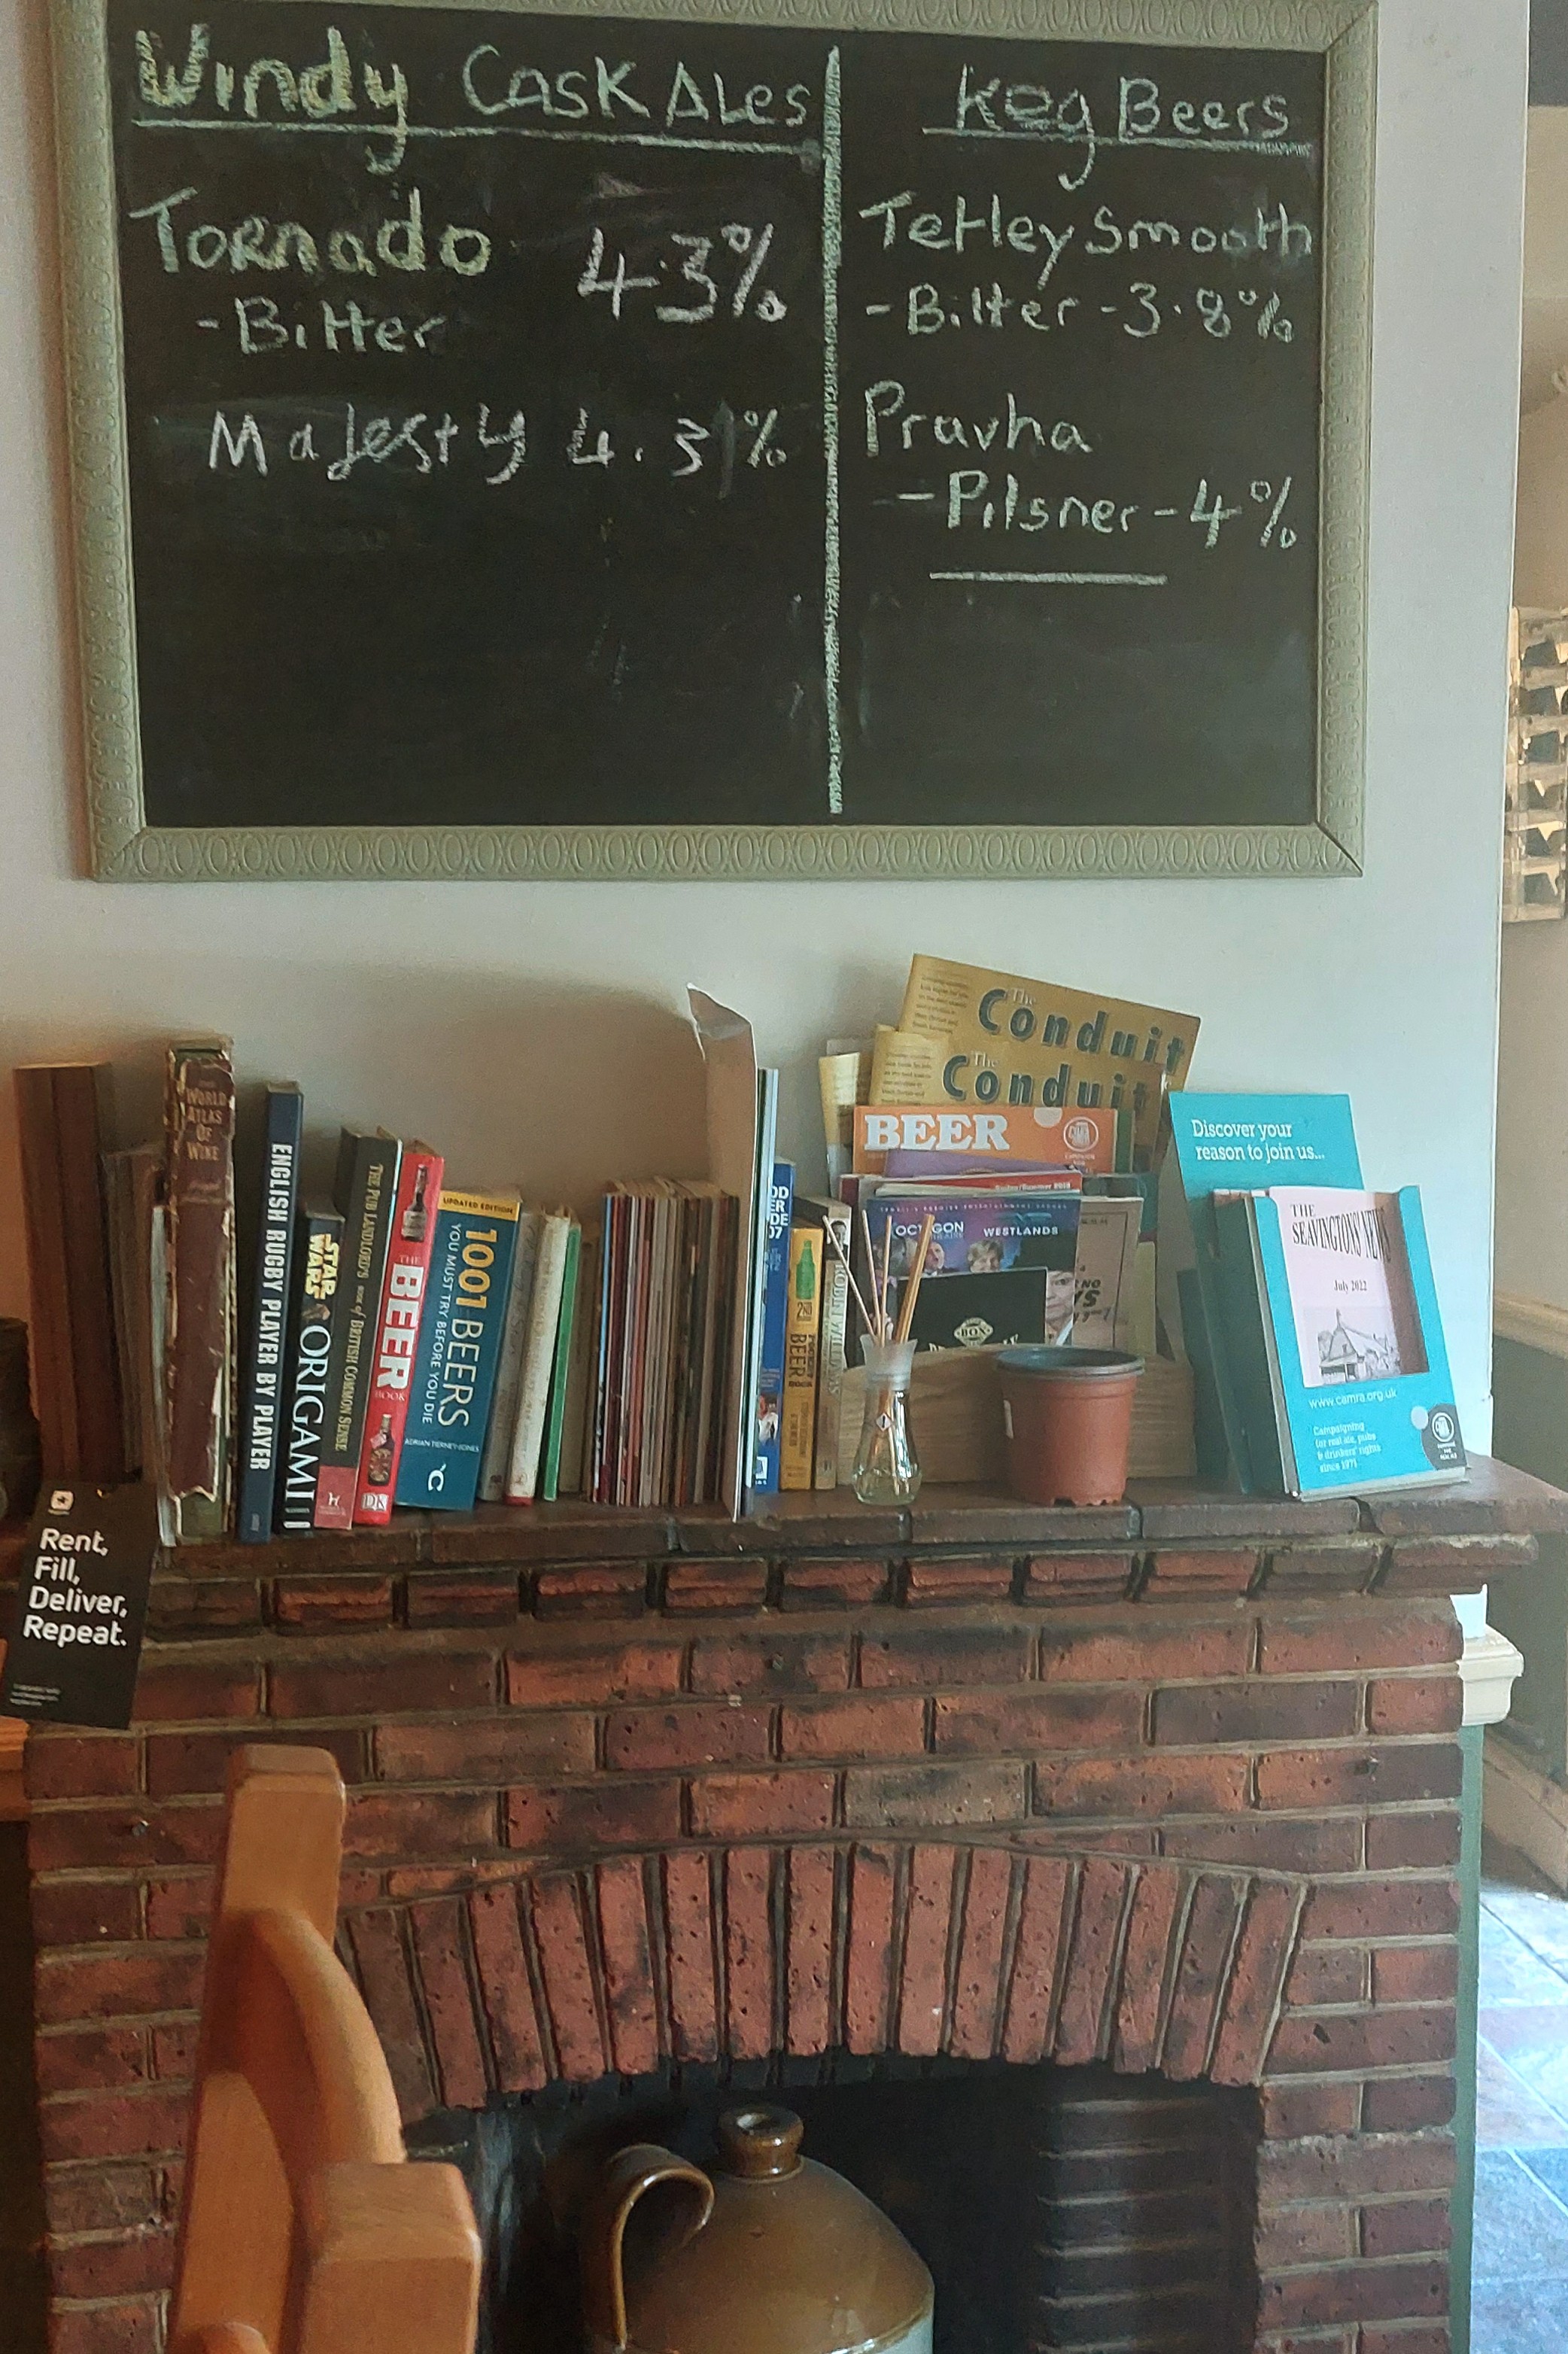 Windy Cask Ales
Tornado 4.3%
- Bitter
Majesty 4.3%
Keg Beers
Tetley Smooth
- Bitter - 3.8%
Pravha
- Pilsner - 4%
The
Conduit
The
Conduit
BEER
WORLD
ATLAS
OF
WINE
ENGLISH RUGBY PLAYER BY PLAYER
STAR
WARS
ORIGAMI
THE PUB LANDLORD'S BOOK of BRITISH COMMON SENSE
THE
BEER
BOOK
DK
UPDATED EDITION
1001 BEERS
YOU MUST TRY BEFORE YOU DIE
ADRIAN TIERNEY-JONES
2ND
BEER
OCTAGON
WESTLANDS
BOX
Discover your
reason to join us...
THE
SEAVINGTONS' NEWS
July 2022
www.camra.org.uk
Campaigning
for real ale, pubs
& drinkers' rights
since 1971
Rent,
Fill,
Deliver,
Repeat.